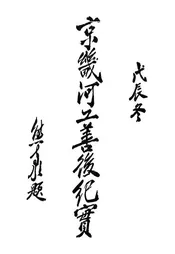 戊辰冬
京畿河工善後紀實
熊希齡題